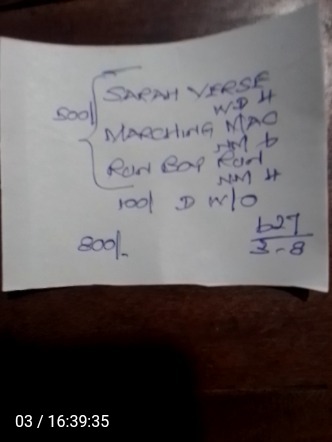 500/
SARAH VERSE
WD 4
MARCHING MAO
NM 6
RUN BOY RUN
NM 4
100/ D W/O
800/-
627
3-8
03 / 16:39:35